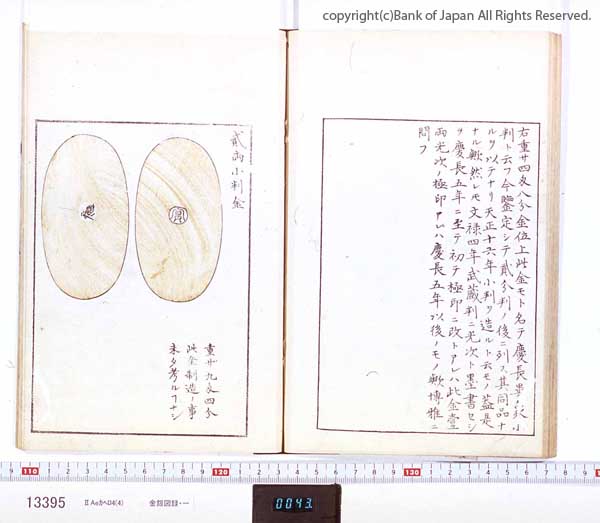 copyright(c)Bank of Japan All Rights Reserved.
右重廿四匁八分金位上此金モト名テ慶長
判ト云フ今鑒定シテ貳分判ノ後ニ列ス其同品ナ
ルヲ以テナリ天正十六年小判ヲ造ルト云モノ蓋是
ナル歟然レ𪜈文禄四年武蔵判ニ光次ト墨書セシ
ヲ慶長五年ニ至テ初テ極印ニ改トアレハ此金壹
両光次ノ極印アレハ慶長五年以後ノモノ歟博雅ニ
問フ
貳両小判金
重廿九匁四分
此金制造ノ事
未タ考ルコナシ
110
120
130
13395
ⅡAeカベD4(4)
金銀図録・一
0043